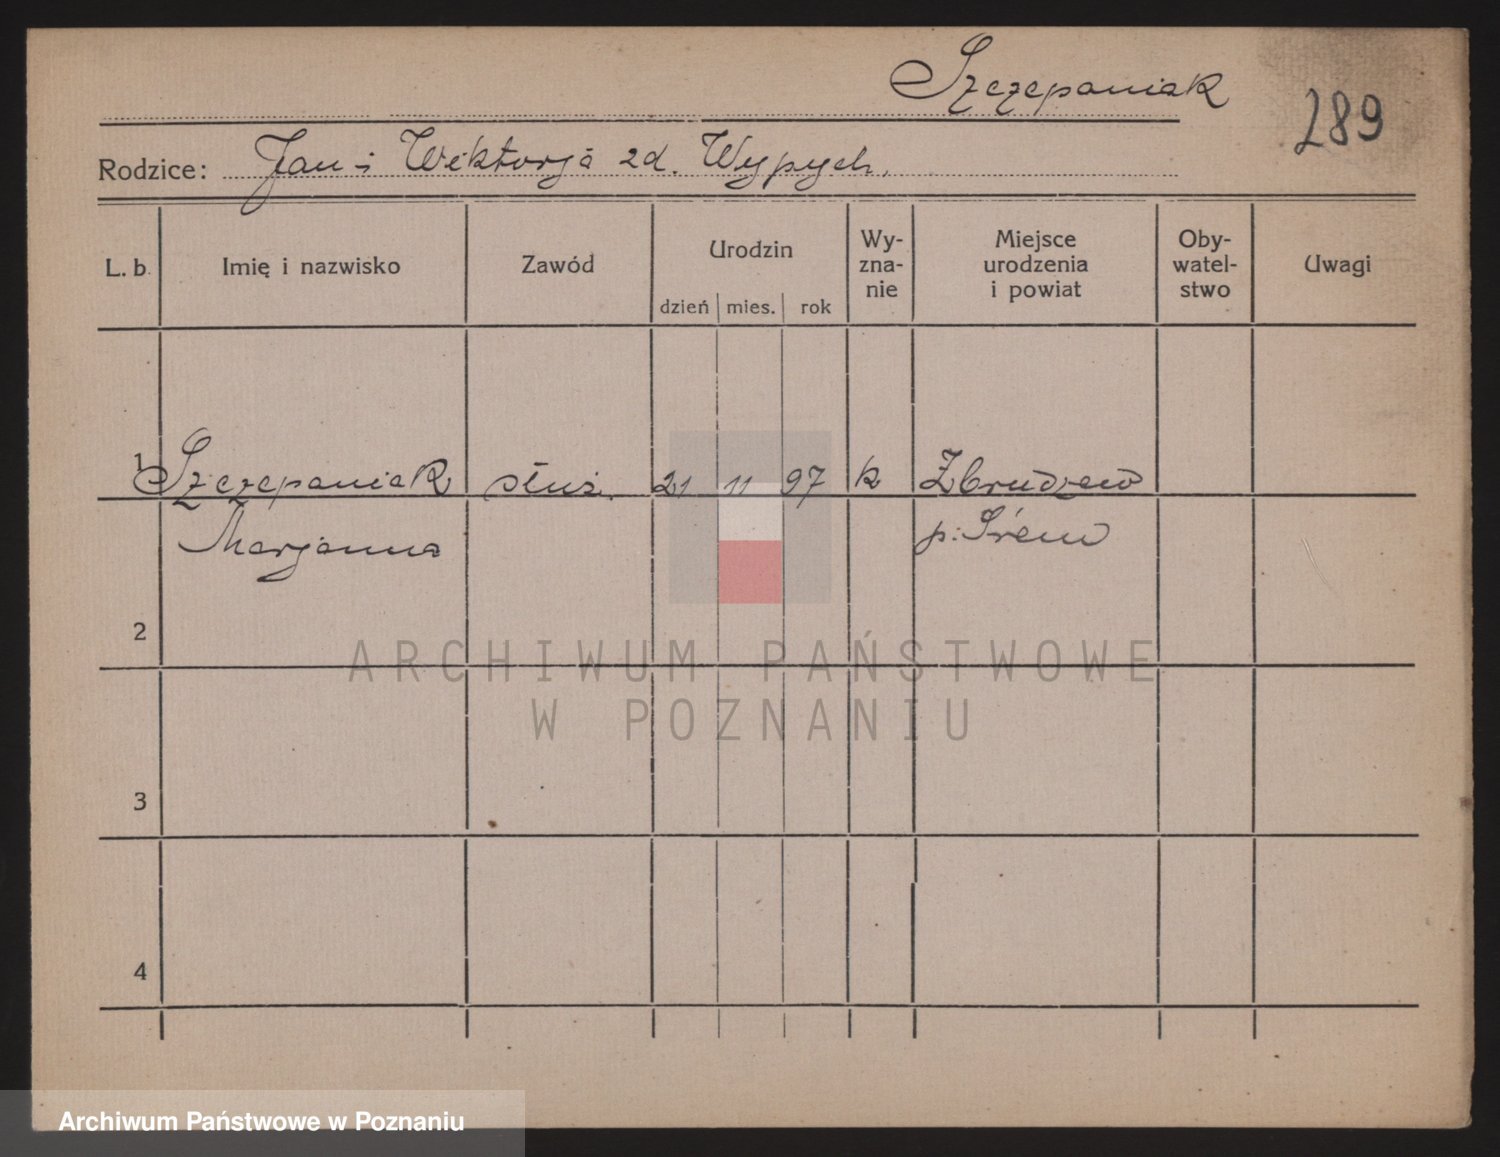 Szczepaniak
289
Rodzice: Jan i Wiktorja zd. Wypych.
L. b. Imię i nazwisko Zawód Urodzin dzień mies. rok Wy-zna-nie Miejsce urodzenia i powiat Oby-watel-stwo Uwagi
1 Szczepaniak służ. 21 11 97 k Zbrudzewo
Marjanna p. Śrem
2
3
4
ARCHIWUM PAŃSTWOWE
W POZNANIU
Archiwum Państwowe w Poznaniu